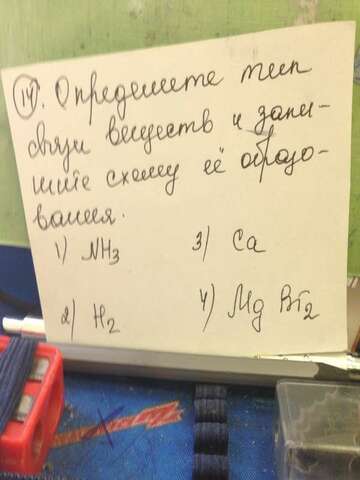 14. Определите тип
связи веществ и запи-
шите схему её образо-
вания.
1) NH3 3) Ca
2) H2 4) Mg Br2